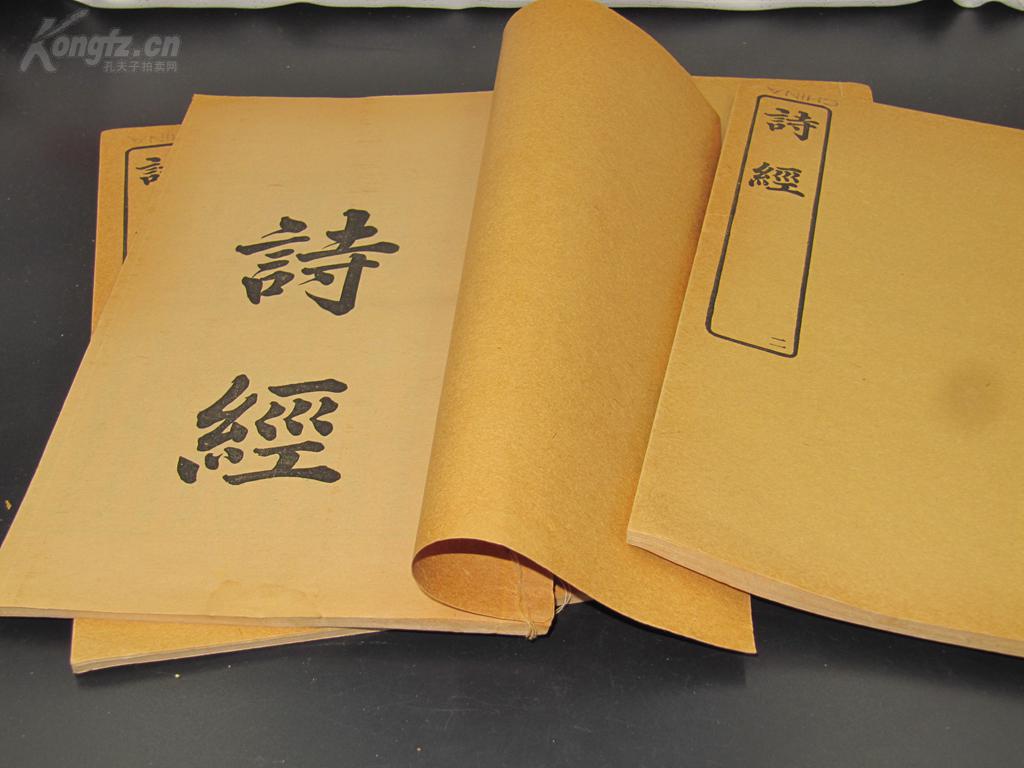 Kongfz.cn
孔夫子拍卖网
CHINA
詩經
二
詩經
CHINA
詩